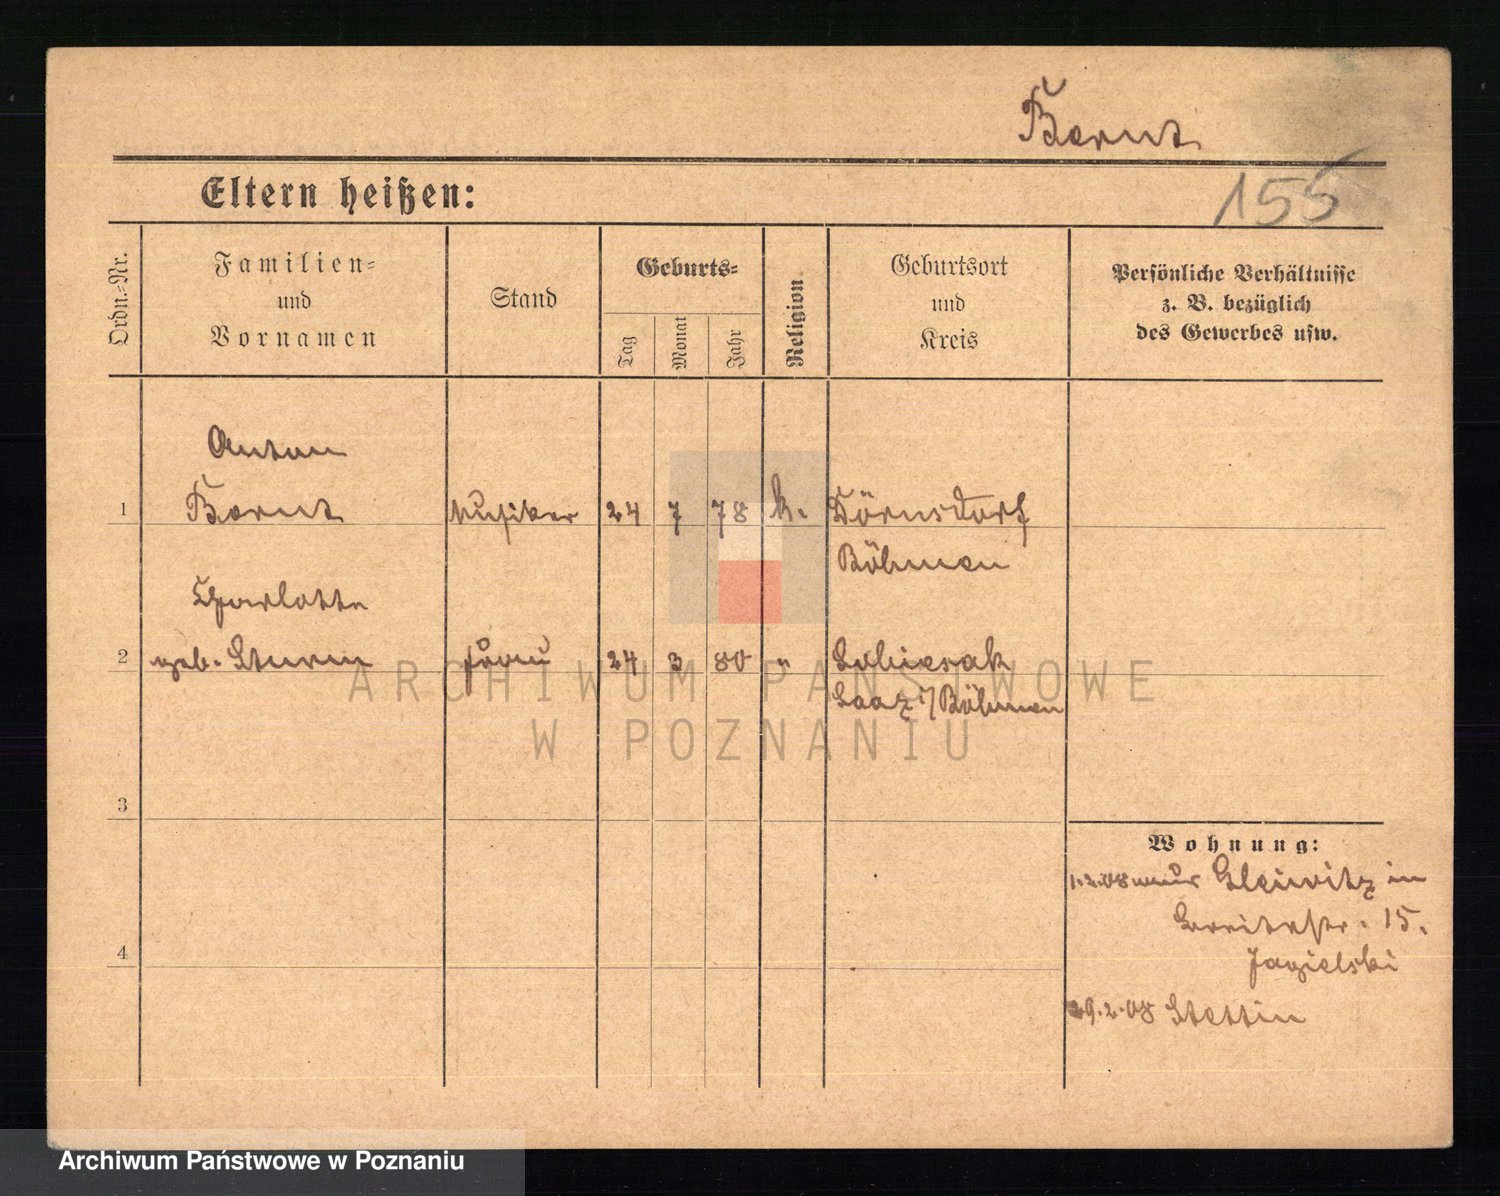 Bernt
155
Eltern heißen:
Ordn.-Nr.
Familien-
und
Vornamen
Stand
Geburts-
Tag
Monat
Jahr
Religion.
Geburtsort
und
Kreis
Persönliche Verhältnisse
z. B. bezüglich
des Gewerbes usw.
Anton
1 Bernt Musiker 24 7 78 k. Dörnsdorf
Böhmen
Charlotte
2 geb. Sturm Frau 24 3 80 "
Saaz i/Böhmen
3
4
Wohnung:
1.2.08 Gleiwitz in
15.
Jagielski
29.2.08 Stettin
ARCHIWUM PAŃSTWOWE
W POZNANIU
Archiwum Państwowe w Poznaniu